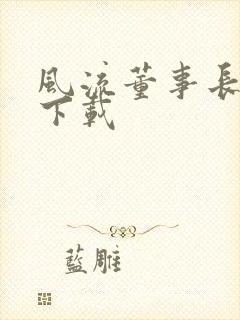 風流董事長
下載
藍雕